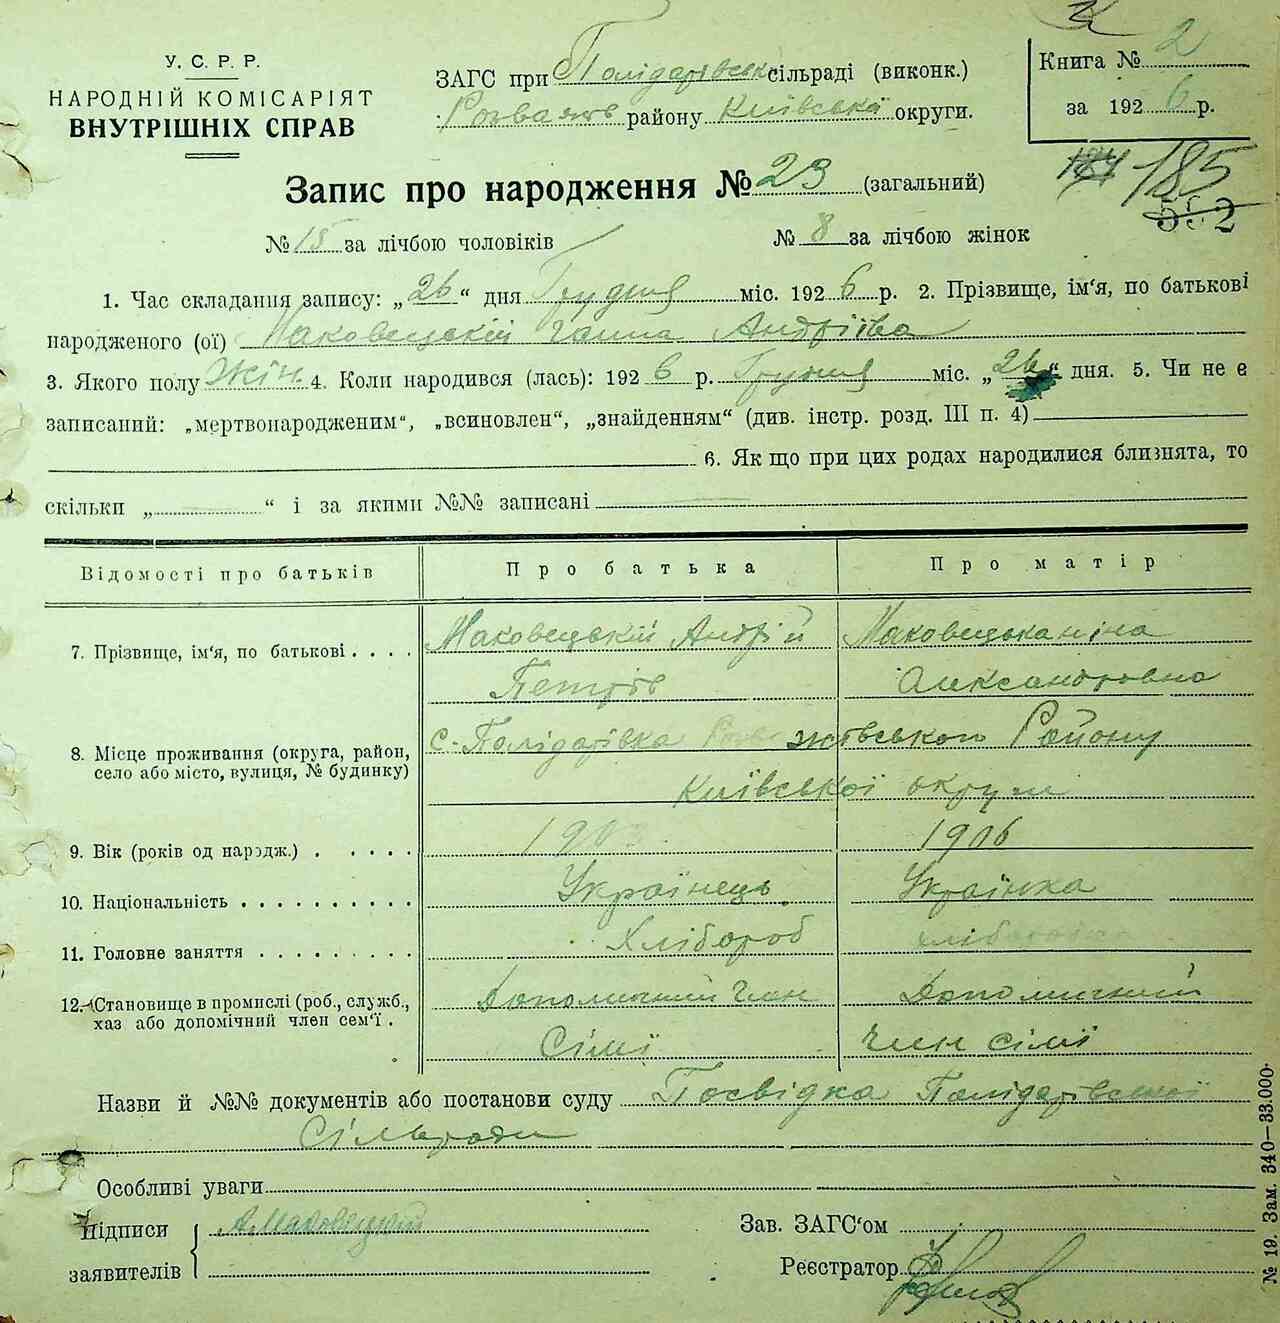 У. С. Р. Р.
НАРОДНІЙ КОМІСАРІЯТ
ВНУТРІШНІХ СПРАВ
ЗАГС при Полідарівськ сільраді (виконк.)
району Київської округи.
Книга № 2
за 1926 р.
185
592
Запис про народження № 23 (загальний)
№ 15 за лічбою чоловіків № 8 за лічбою жінок
1. Час складання запису: „26“ дня Грудня міс. 1926 р. 2. Прізвище, ім'я, по батькові
народженого (ої) Маковецькій Ганна Андрііва
3. Якого полу жін. 4. Коли народився (лась): 1926 р. Грудня міс. „26“ дня. 5. Чи не є
записаний: „мертвонародженим“, „всиновлен“, „знайденням“ (див. інстр. розд. III п. 4)
6. Як що при цих родах народилися близнята, то
скільки „ “ і за якими №№ записані
Відомості про батьків Про батька Про матір
7. Прізвище, ім'я, по батькові Маковецькій Андрій Маковецька ніна
Петрів Александровна
8. Місце проживання (округа, район, село або місто, вулиця, № будинку) с. Полідарівка Району
Київської округи
9. Вік (років од нарэдж.) 1903 1906
10. Національність Українець Українка
11. Головне заняття Хлібороб
12. Становище в промислі (роб., служб., хаз або допомічний член сем'ї. Дополичний член Дополичний
Сімї член сімї
Назви й №№ документів або постанови суду Посвідка Полідарівської
Сільради
Особливі уваги
Підписи
заявителів
АМаковецкий
Зав. ЗАГС'ом
Реєстратор
№ 19. Зам. 340—33.000.